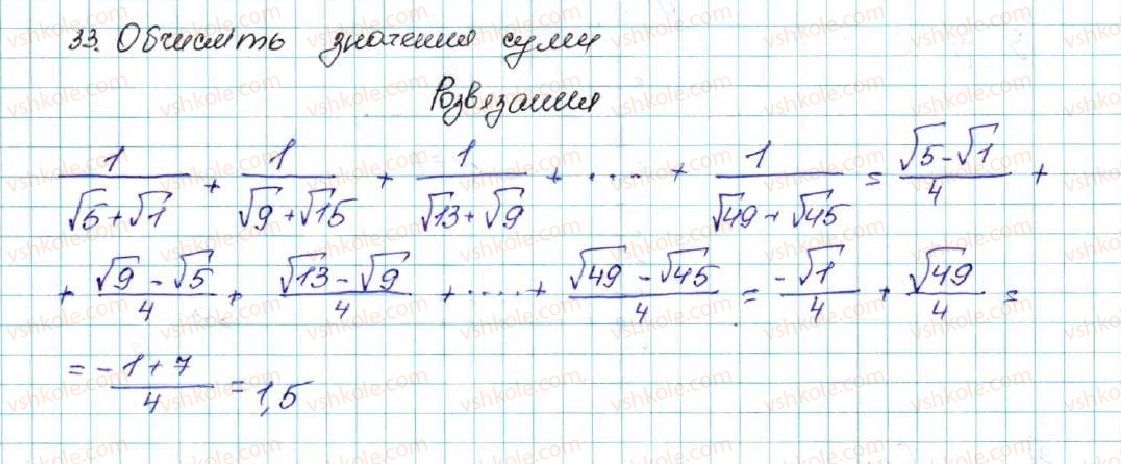 33. Обчисліть значення суми
Розвязання
1/(√5+√1) + 1/(√9+√15) + 1/(√13+√9) + .... + 1/(√49+√45) = (√5-√1)/4 +
+ (√9-√5)/4 + (√13-√9)/4 + ..... + (√49-√45)/4 = -√1/4 + √49/4 =
= (-1+7)/4 = 1,5